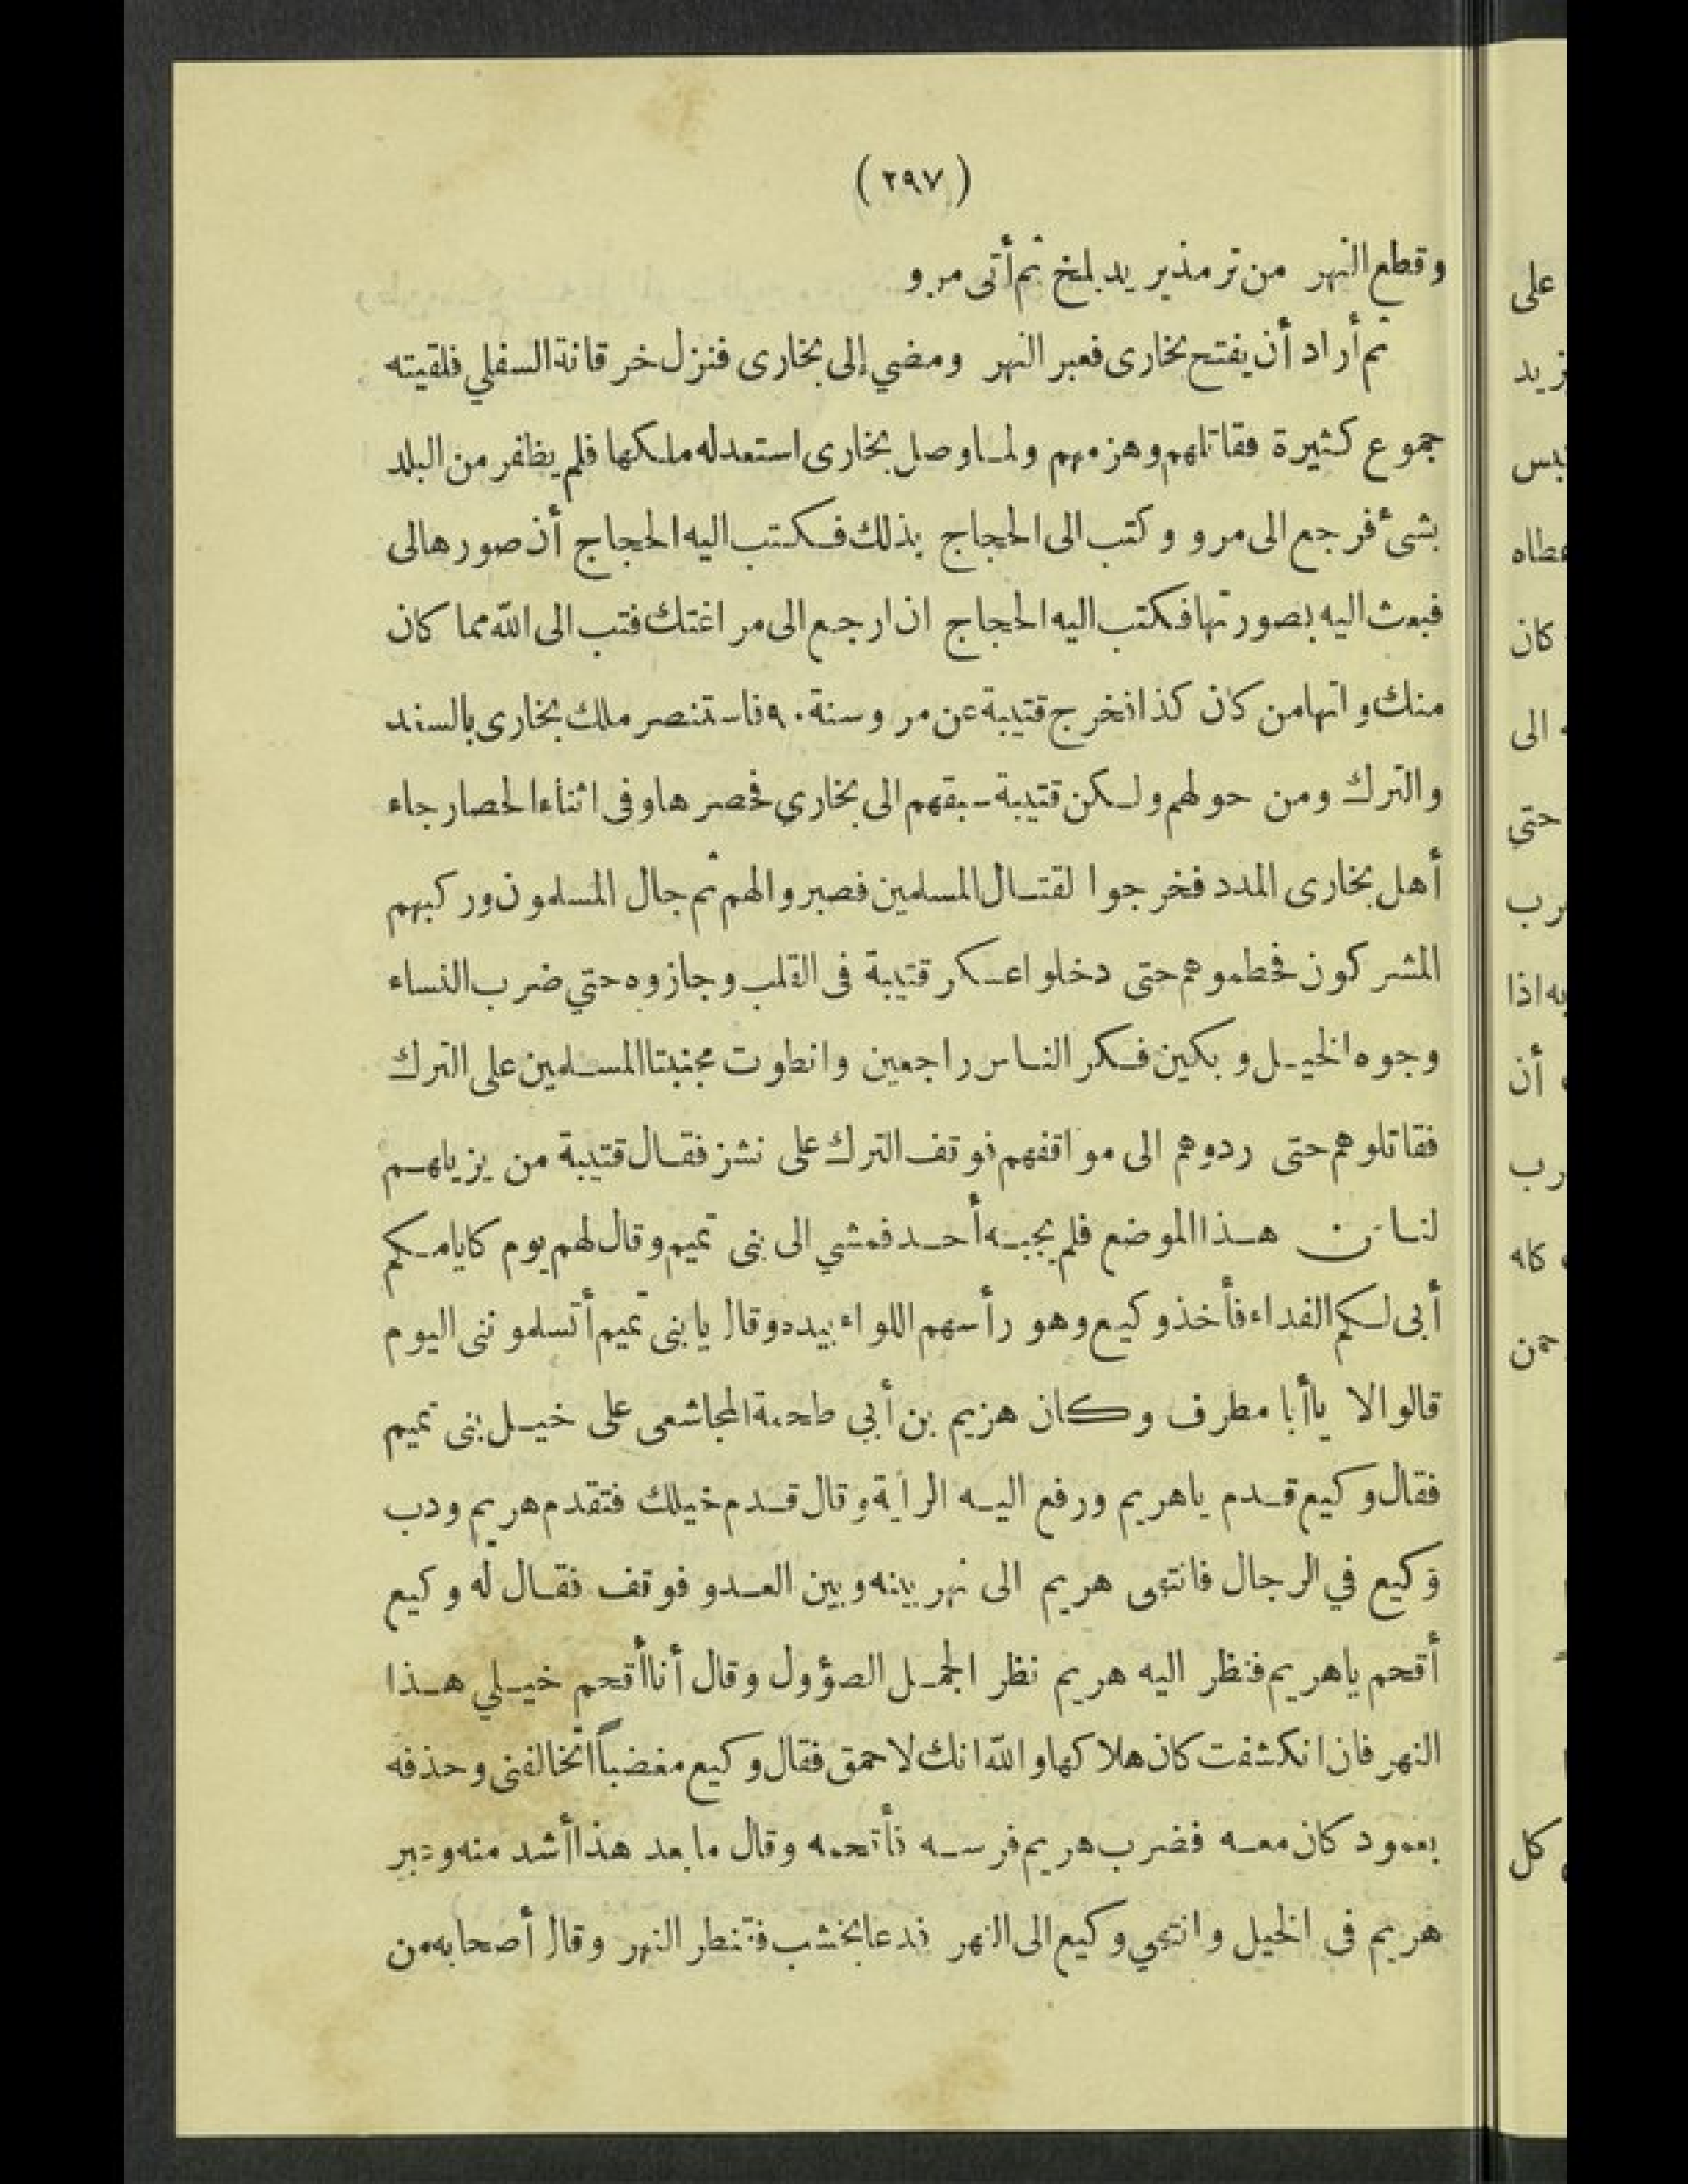 (٢٩٧)
وقطع النهر من ترمذ يريد بلخ ثم أتى مرو
ثم أراد أن يفتح بخارى فعبر النهر ومضي إلى بخارى فنزل خرقانة السفلي فلقيته
جموع كثيرة فقاتلهم وهزمهم ولما وصل بخارى استعد له ملكها فلم يظفر من البلد
بشئ فرجع الى مرو وكتب الى الحجاج بذلك فكتب اليه الحجاج أن صورها لى
فبعث اليه بصورتها فكتب اليه الحجاج ان ارجع الى مراغتك فتب الى الله مما كان
منك واتها من كان كذا فخرج قتيبة عن مرو سنة ٩٠ فاستنصر ملك بخارى بالسند
والترك ومن حولهم ولكن قتيبة سبقهم الى بخاري فحصرها وفى اثناء الحصار جاء
أهل بخارى المدد فخرجوا لقتال المسلمين فصبروا لهم ثم جال المسلمون وركبهم
المشركون فحطموهم حتى دخلوا عسكر قتيبة فى القلب وجازوه حتي ضرب النساء
وجوه الخيل وبكين فكر الناس راجعين وانطوت مجنبتا المسلمين على الترك
فقاتلوهم حتى ردوهم الى مواقفهم فوقف الترك على نشز فقال قتيبة من يزيلهم
لنا من هذا الموضع فلم يجبه أحد فمشي الى بنى تميم وقال لهم يوم كايامكم
أبى لكم الفداء فأخذ وكيع وهو رأسهم اللواء بيده وقال يا بنى تميم أتسلموننى اليوم
قالوا لا ياأبا مطرف وكان هزيم بن أبي طحمة المجاشعى على خيل بنى تميم
فقال وكيع قدم ياهريم ورفع اليه الراية وقال قدم خيلك فتقدم هريم ودب
وكيع في الرجال فانتهى هريم الى نهر بينه وبين العدو فوقف فقال له وكيع
أقحم ياهريم فنظر اليه هريم نظر الجمل الصؤول وقال أنا أقحم خيلي هذا
النهر فان انكشفت كان هلاكها والله انك لاحمق فقال وكيع مغضباً اتخالفنى وحذفه
بعمود كان معه فضرب هريم فرسه فأقحمه وقال ما بعد هذا أشد منه وعبر
هريم فى الخيل وانتهي وكيع الى النهر فدعا بخشب فقنطر النهر وقال أصحابه من